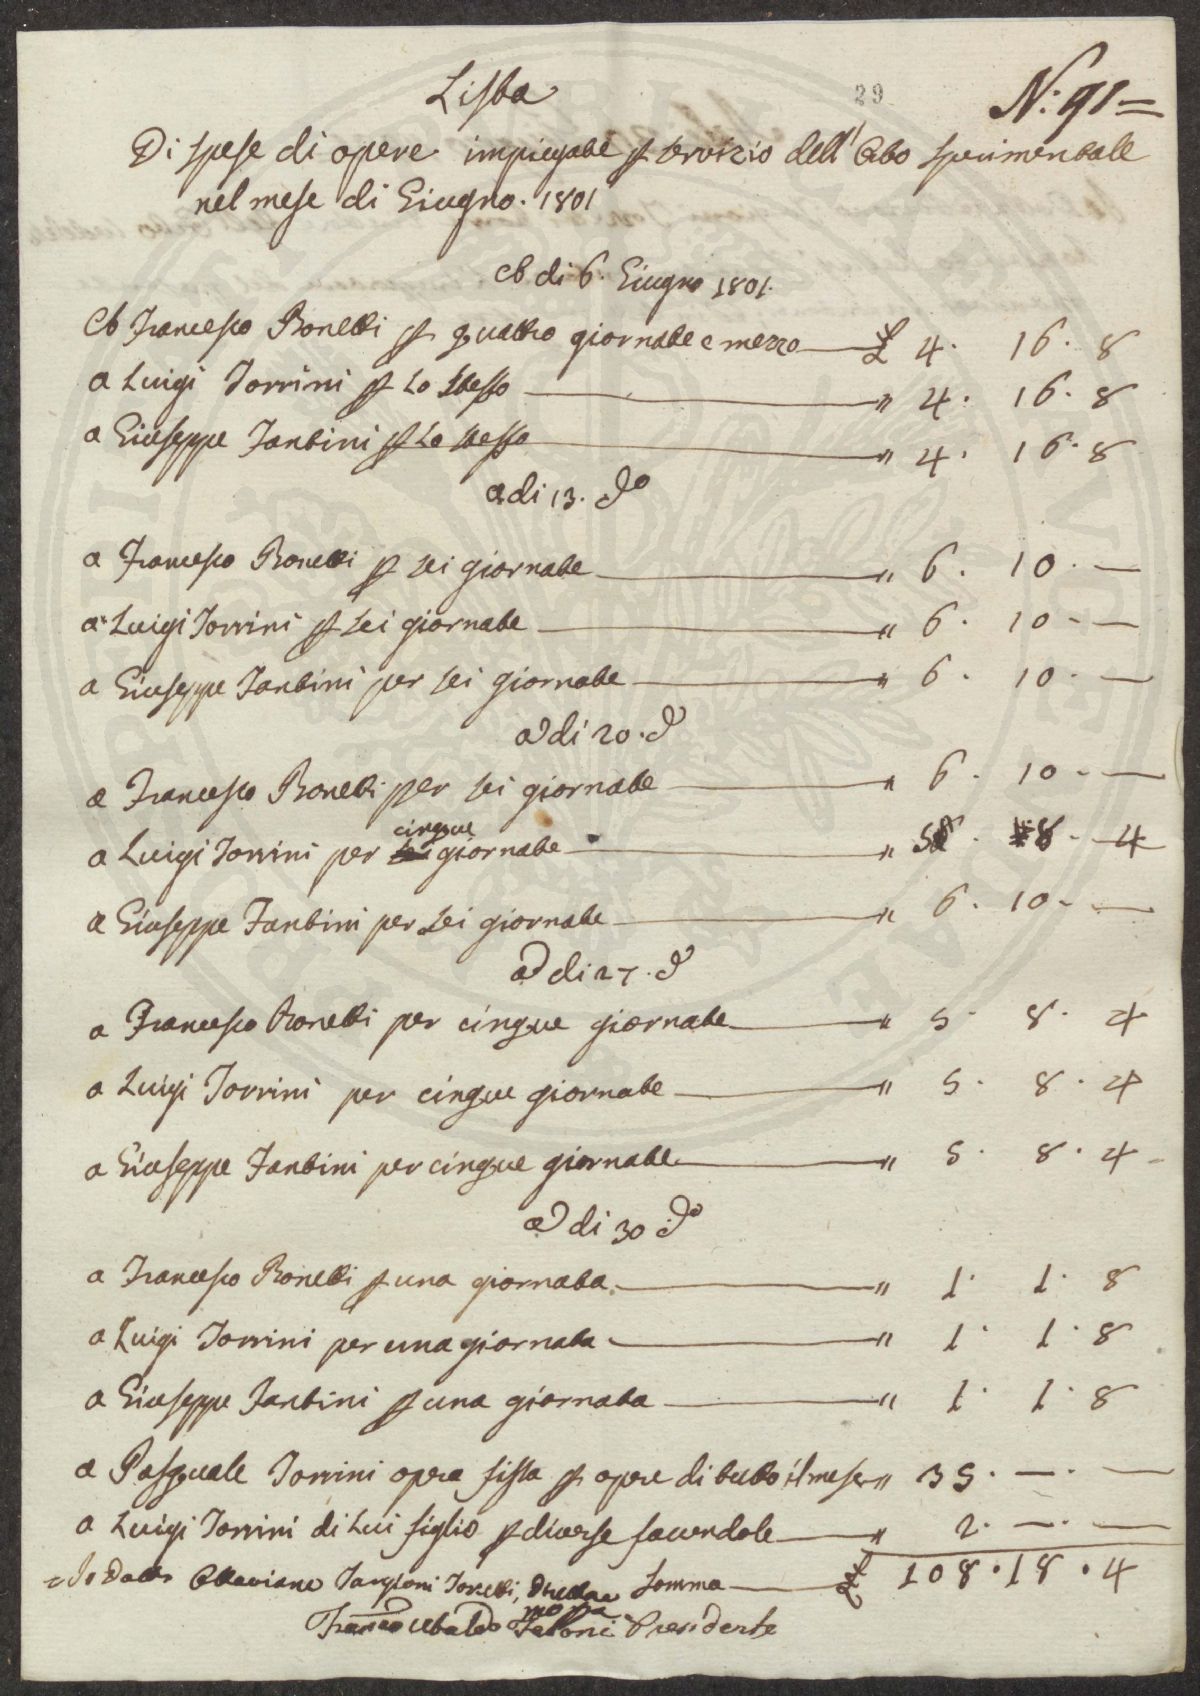 Lista
29
N: 91=
Di spese di opere impiegate p servizio dell'Orto sperimentale
nel mese di Giugno. 1801
A di 6. Giugno 1801.
A Francesco Bonetti p quattro giornate e mezzo £ 4. 16. 8
a Luigi Torrini p Lo stesso " 4. 16. 8
a Giuseppe Tantini p Lo stesso " 4. 16. 8
a di 13. do
a Francesco Bonetti p sei giornate " 6. 10. —
a Luigi Torrini p sei giornate " 6. 10. —
a Giuseppe Tantini per sei giornate " 6. 10. —
a di 20. do
a Francesco Bonetti per sei giornate " 6. 10. —
a Luigi Torrini per cinque giornate " 5. 8. 4
a Giuseppe Tantini per sei giornate " 6. 10. —
a di 27. do
a Francesco Bonetti per cinque giornate " 5. 8. 4
a Luigi Torrini per cinque giornate " 5. 8. 4
a Giuseppe Tantini per cinque giornate " 5. 8. 4
a di 30 do
a Francesco Bonetti p una giornata " 1. 1. 8
a Luigi Torrini per una giornata " 1. 1. 8
a Giuseppe Tantini p una giornata " 1. 1. 8
a Pasquale Torrini opera fissa p opere di tutto il mese " 35. —. —
a Luigi Torrini di Lui figlio p diverse facendole " 2. —. —
Io Dott. Ottaviano Targioni Tozzetti, Direttore Somma £ 108. 18. 4
Franco Ubaldo Feroni Presidente